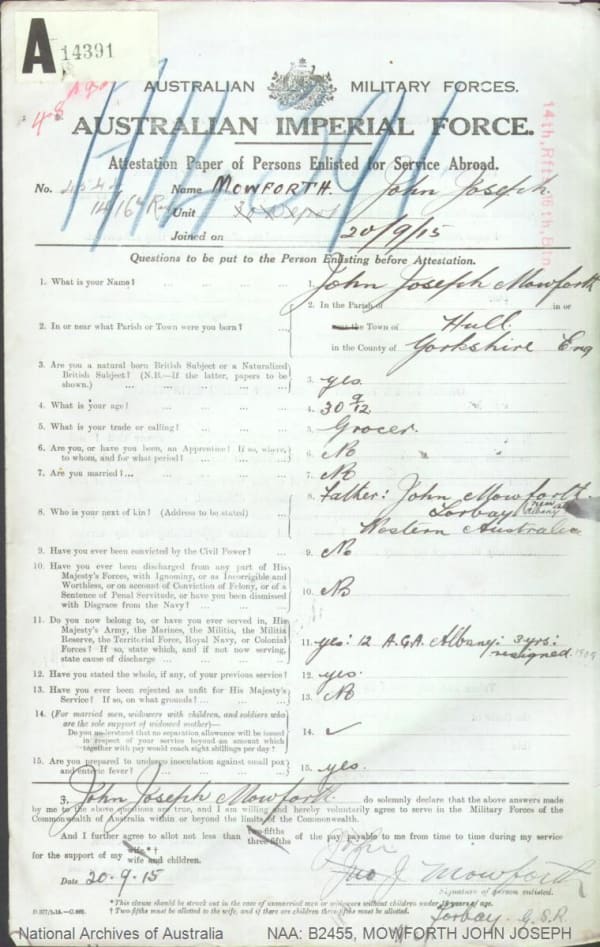 A 14391
AUSTRALIAN MILITARY FORCES.
AUSTRALIAN IMPERIAL FORCE.
Attestation Paper of Persons Enlisted for Service Abroad.
No. Name MOWFORTH. John Joseph.
14164 Unit
Joined on 20/9/15
14th, Rfts 16th, Btn
Questions to be put to the Person Enlisting before Attestation.
1. What is your Name? ... 1. John Joseph Mowforth
2. In or near what Parish or Town were you born? ... 2. In the Parish of in or
near the Town of Hull
in the County of Yorkshire Eng
3. Are you a natural born British Subject or a Naturalized
British Subject? (N.B.—If the latter, papers to be
shown.) ... 3. yes.
4. What is your age? ... 4. 30 9/12
5. What is your trade or calling? ... 5. Grocer.
6. Are you, or have you been, an Apprentice? If so, where,
to whom, and for what period? ... 6. No
7. Are you married? ... 7. No
8. Who is your next of kin? (Address to be stated) ... 8. Father: John Mowforth
Torbay near Albany
Western Australia
9. Have you ever been convicted by the Civil Power? ... 9. No
10. Have you ever been discharged from any part of His
Majesty's Forces, with Ignominy, or as Incorrigible and
Worthless, or on account of Conviction of Felony, or of a
Sentence of Penal Servitude, or have you been dismissed
with Disgrace from the Navy? ... 10. No
11. Do you now belong to, or have you ever served in, His
Majesty's Army, the Marines, the Militia, the Militia
Reserve, the Territorial Force, Royal Navy, or Colonial
Forces? If so, state which, and if not now serving,
state cause of discharge ... 11. yes: 12 A.G.A Albany: 3 yrs:
resigned 1909
12. Have you stated the whole, if any, of your previous service? 12. yes.
13. Have you ever been rejected as unfit for His Majesty's
Service? If so, on what grounds? ... 13. No
14. (For married men, widowers with children, and soldiers who
are the sole support of widowed mother)—
Do you understand that no separation allowance will be issued
in respect of your service beyond an amount which
together with pay would reach eight shillings per day? 14. ✓
15. Are you prepared to undergo inoculation against small pox
and enteric fever? ... 15. yes.
I, John Joseph Mowforth do solemnly declare that the above answers made
by me to the above questions are true, and I am willing and hereby voluntarily agree to serve in the Military Forces of the
Commonwealth of Australia within or beyond the limits of the Commonwealth.
And I further agree to allot not less than two-fifths three-fifths of the pay payable to me from time to time during my service
for the support of my wife*† wife and children.
Date 20.9.15
Jno J. Mowforth
Signature of person enlisted.
*This clause should be struck out in the case of unmarried men or widowers without children under 18 years of age.
† Two-fifths must be allotted to the wife, and if there are children three-fifths must be allotted.
Torbay G.S.R
National Archives of Australia NAA: B2455, MOWFORTH JOHN JOSEPH